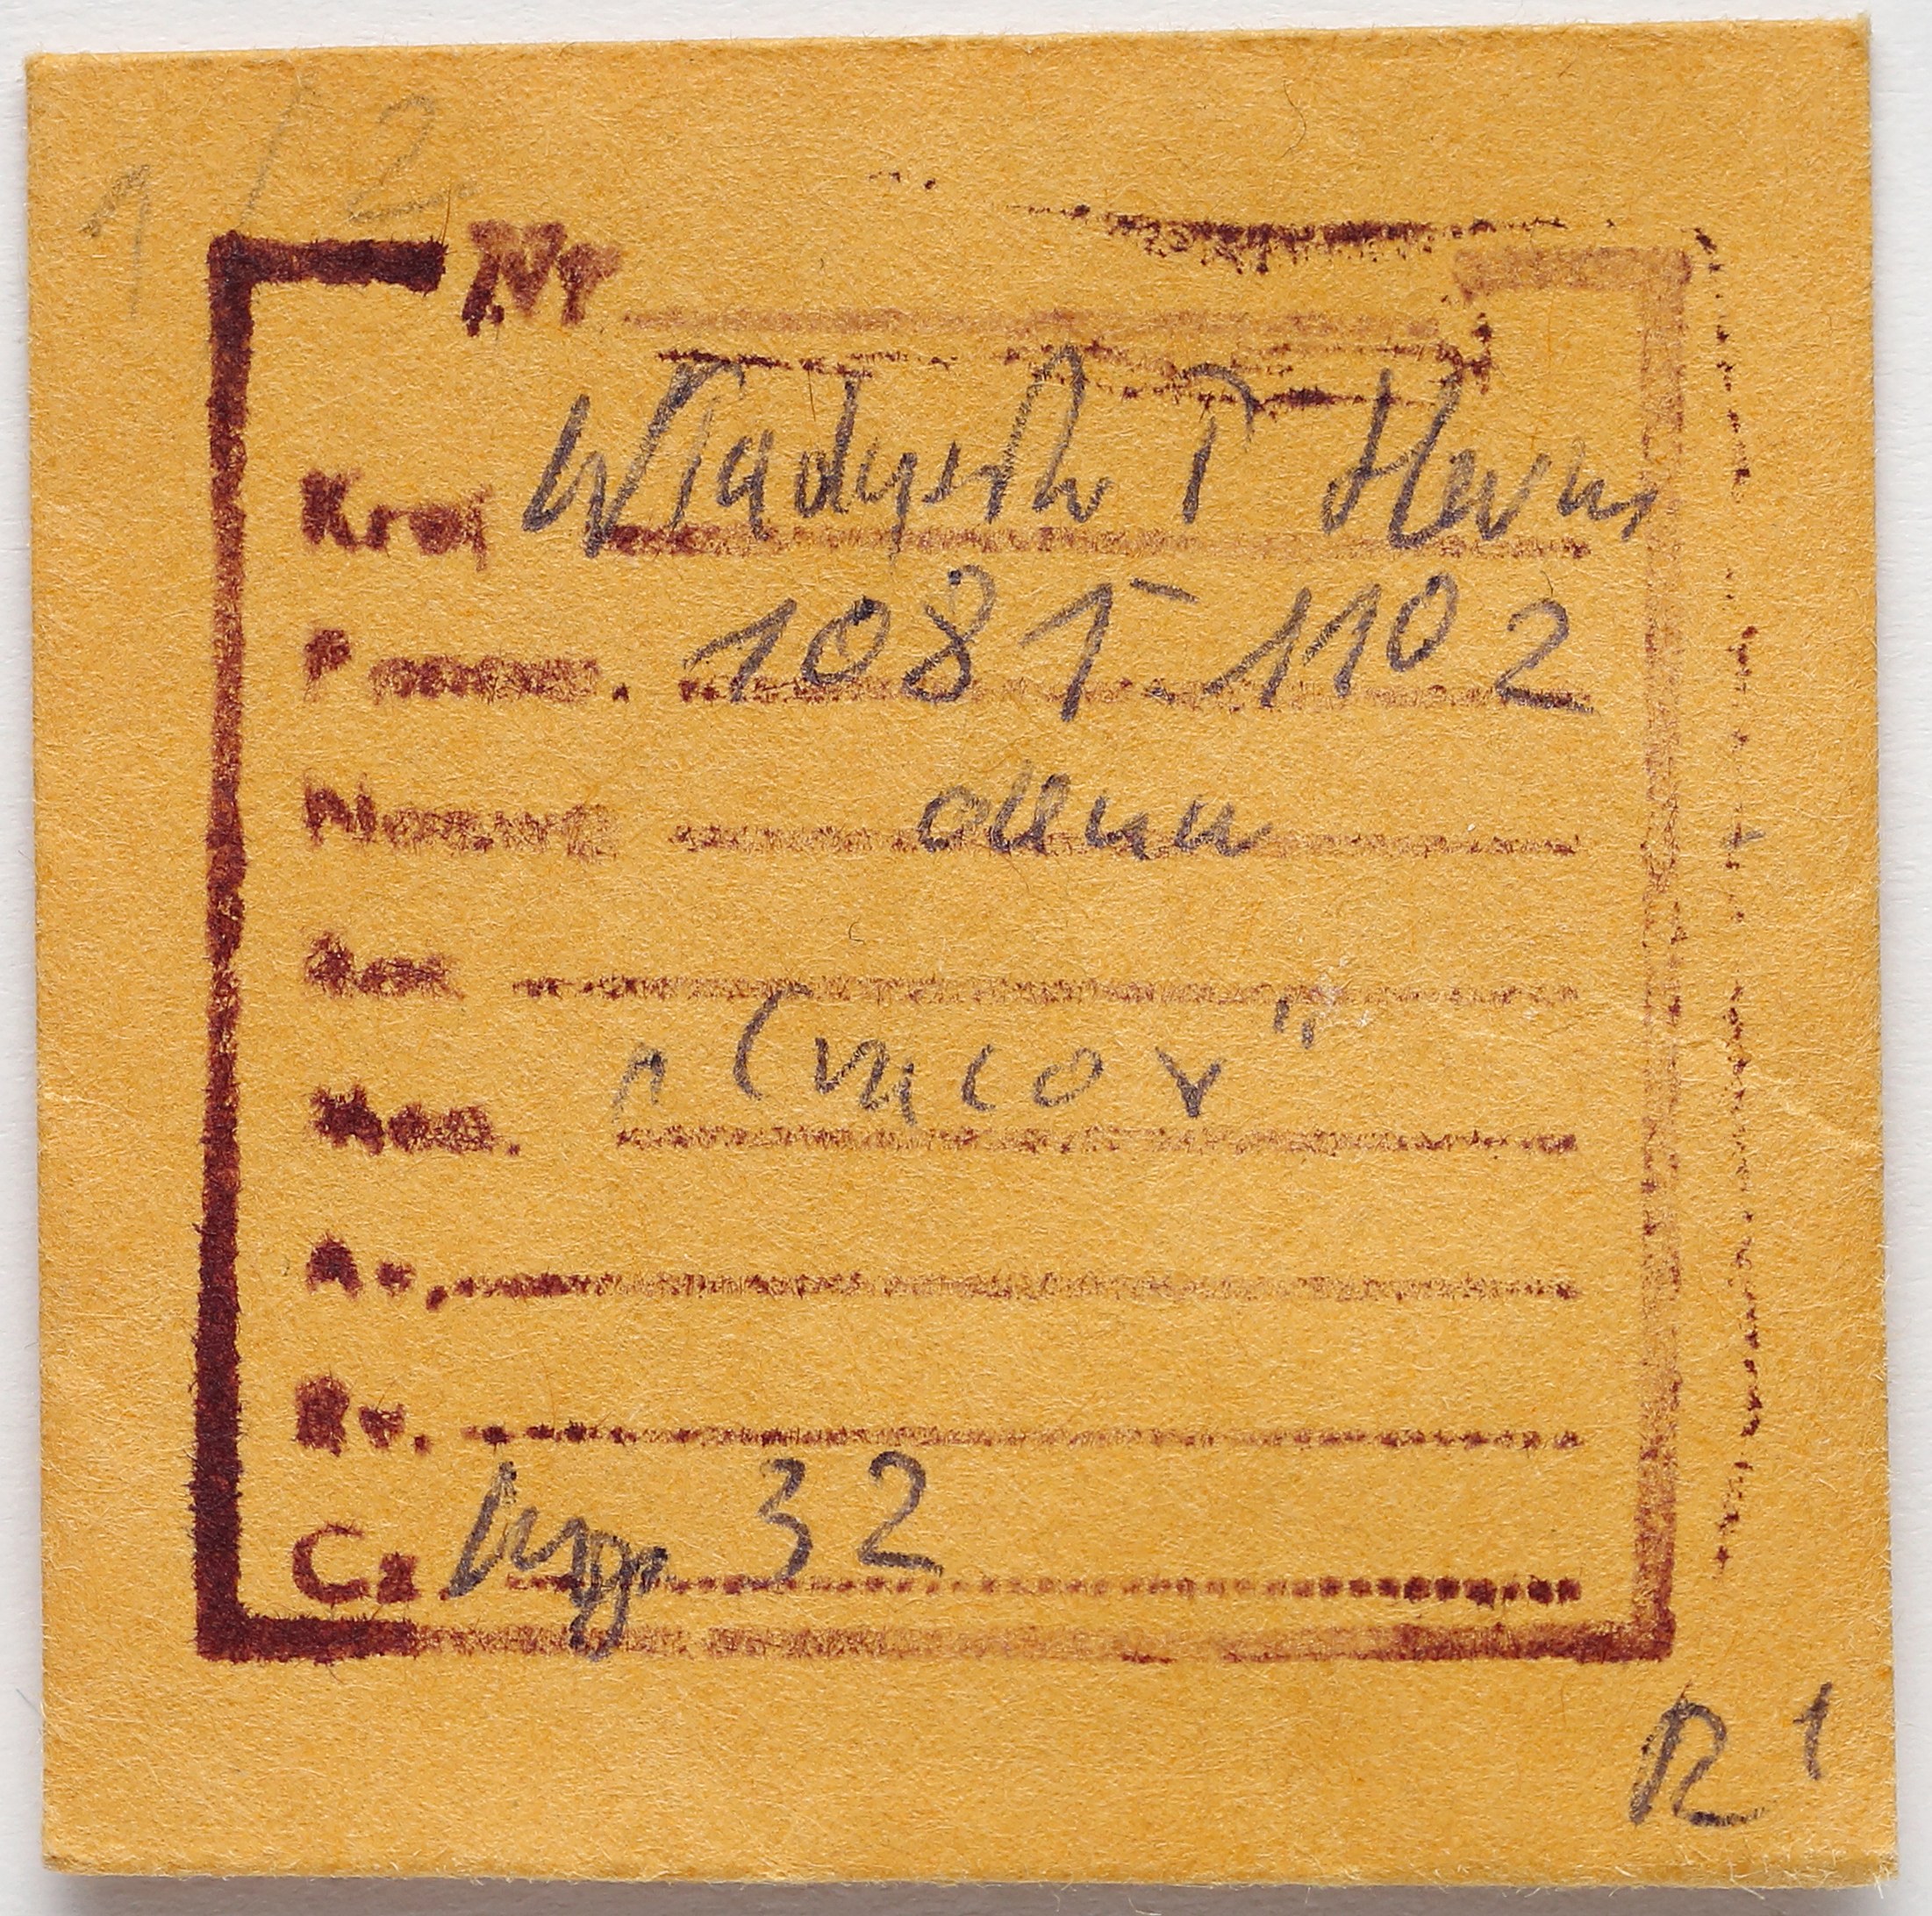 1/2
Nr
Kraj Władysław I Herman
Panow. 1081-1102
Nominał denar
Rok
Men. „Cracov"
Av.
Rv.
Cz Kop 32
R 1